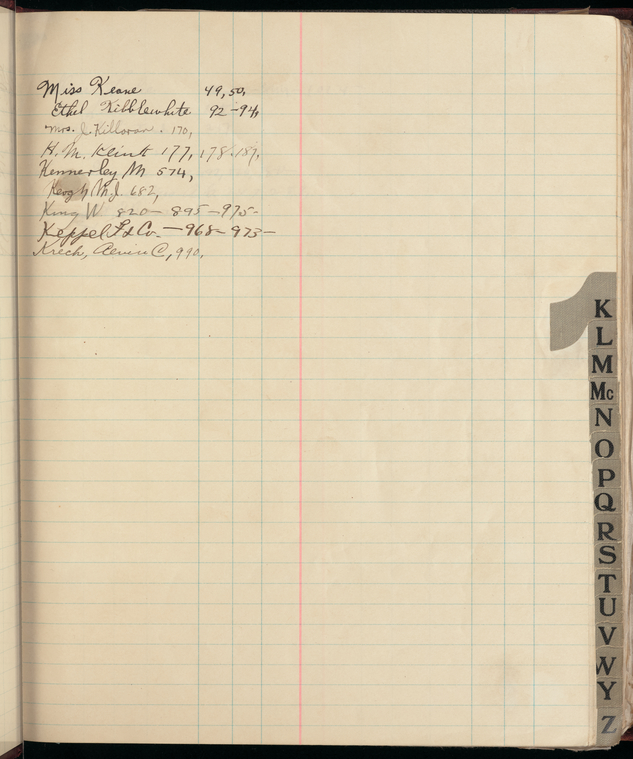 Miss Keane 49, 50,
Ethel Kibblewhite 92-94,
Mrs. J. Killoran. 170,
H. M. Klint 177, 178. 189,
Kennerley M 574,
Keogh M.J. 682,
King W. 820- 895-975-
Keppel & Co.-968-973-
Krech, C, 990,
K
L
M
Mc
N
O
P
Q
R
S
T
U
V
W
Y
Z